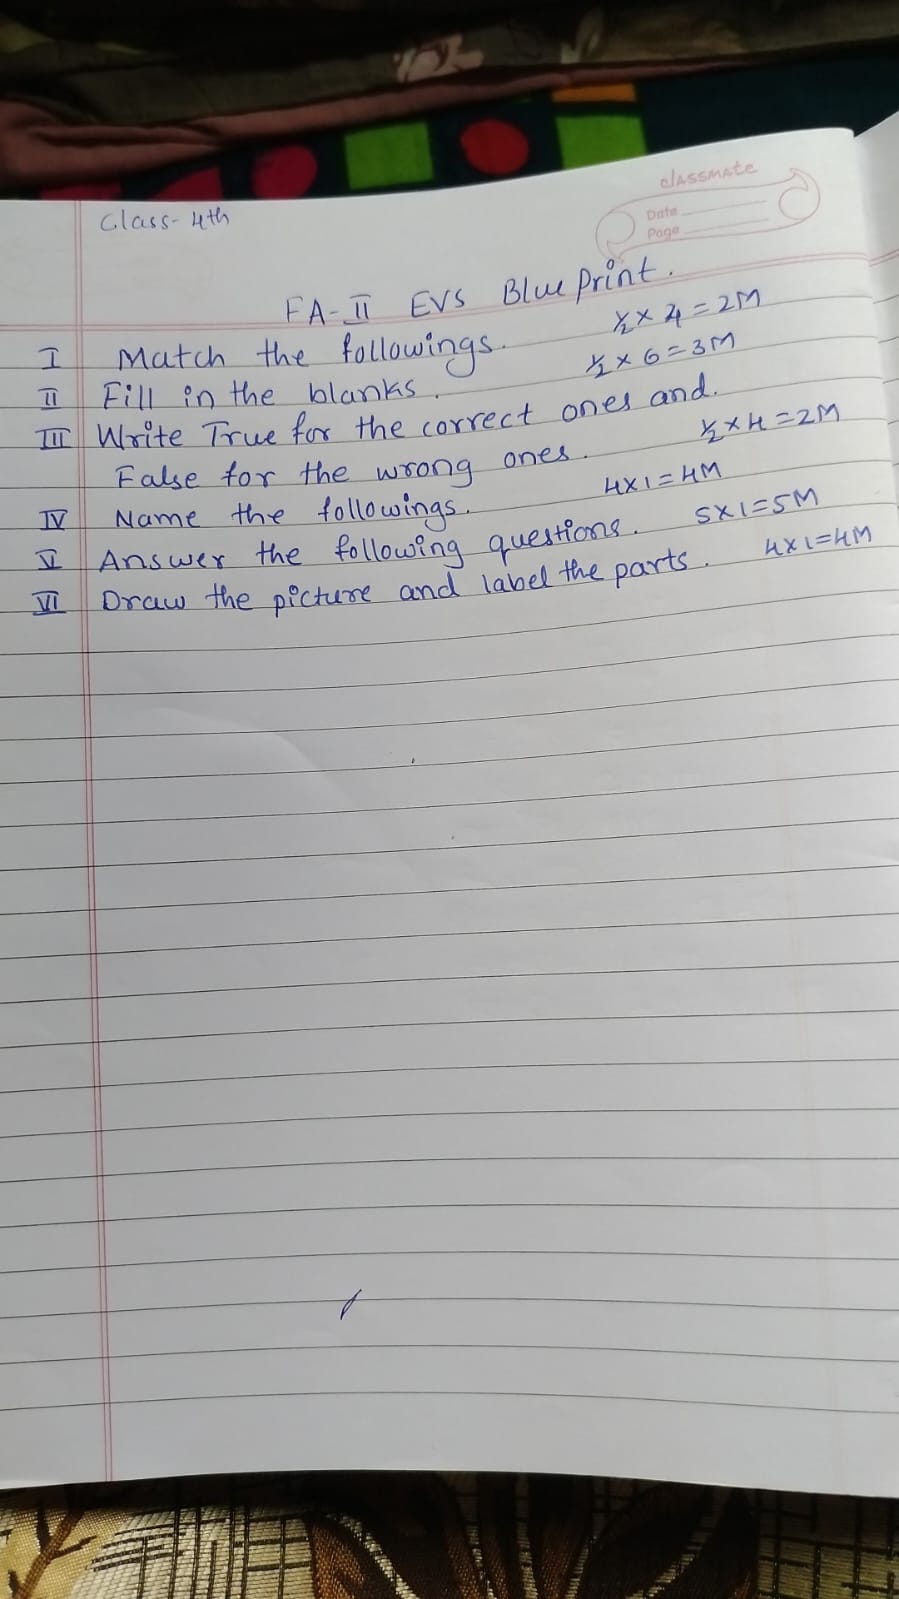 classmate
Date
Page
Class- 4th
FA-II EVS Blue Print.
I Match the followings. ½ × 4 = 2M
II Fill in the blanks. ½ × 6 = 3M
III Write True for the correct ones and.
False for the wrong ones. ½ × 4 = 2M
IV Name the followings. 4×1=4M
V Answer the following questions. 5×1=5M
VI Draw the picture and label the parts. 4×1=4M